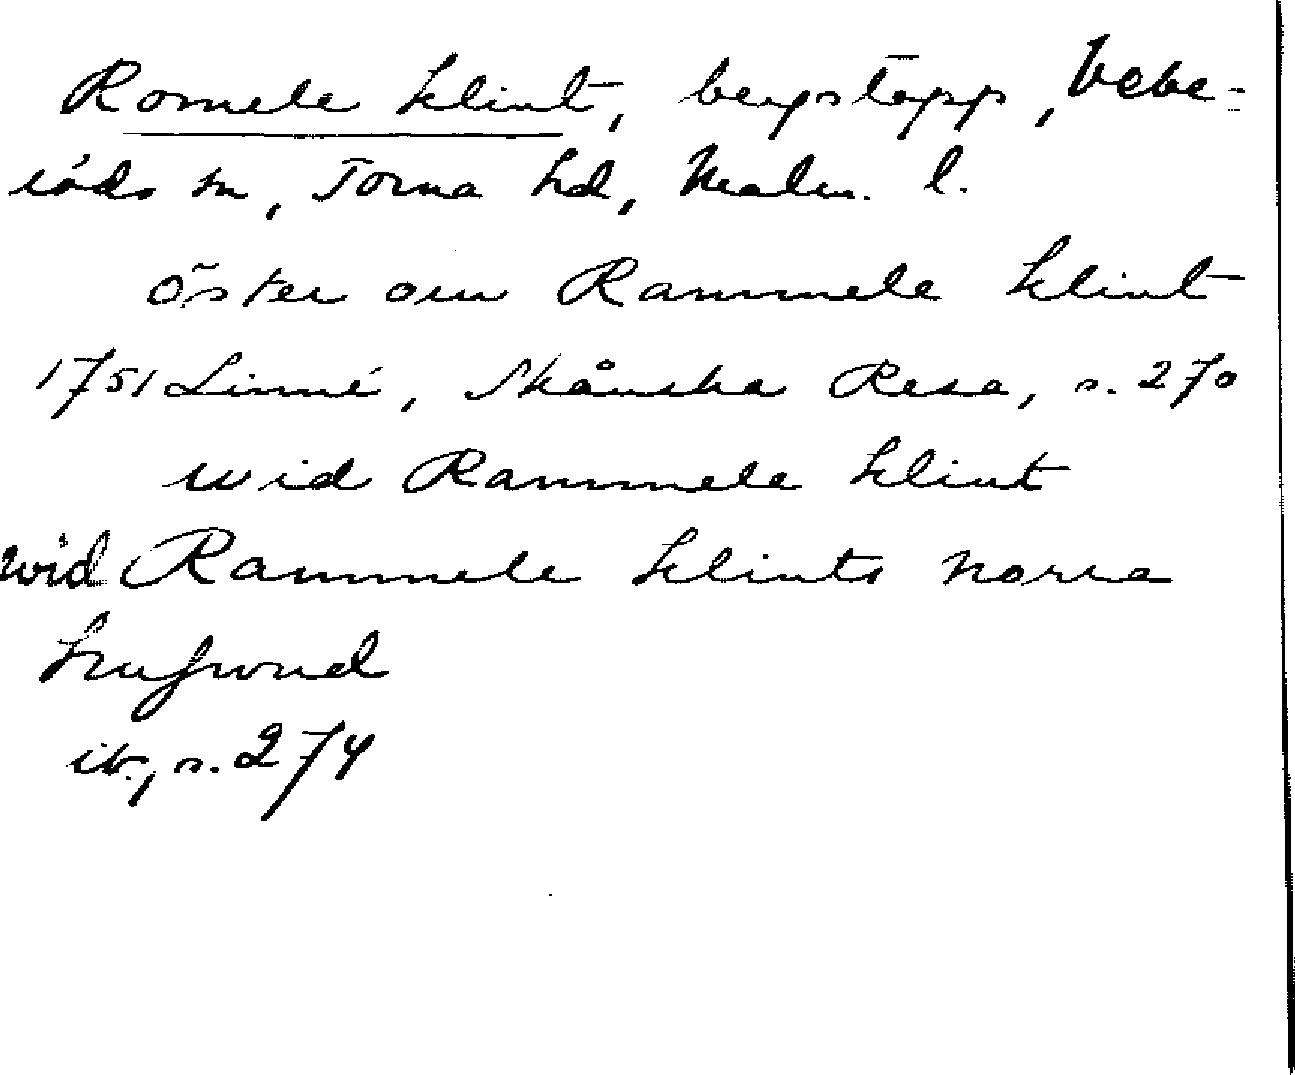 Romele klint, bergstopp, Vebe-
röds sn, Torna hd, Malm. l.
öster om Rammele klint
1751 Linné, Skånska Resa, s. 270
wid Rammele klint
wid Rammele klints norra
hufwud
ib., s. 274